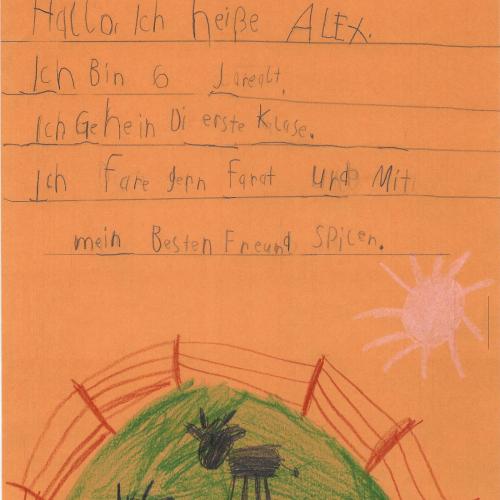 Hallo, Ich heiße ALEX.
Ich Bin 6 Jarealt.
Ich Gehein Di erste Klase.
Ich Fare gern Farat und Mit
mein Besten Freund SPilen.